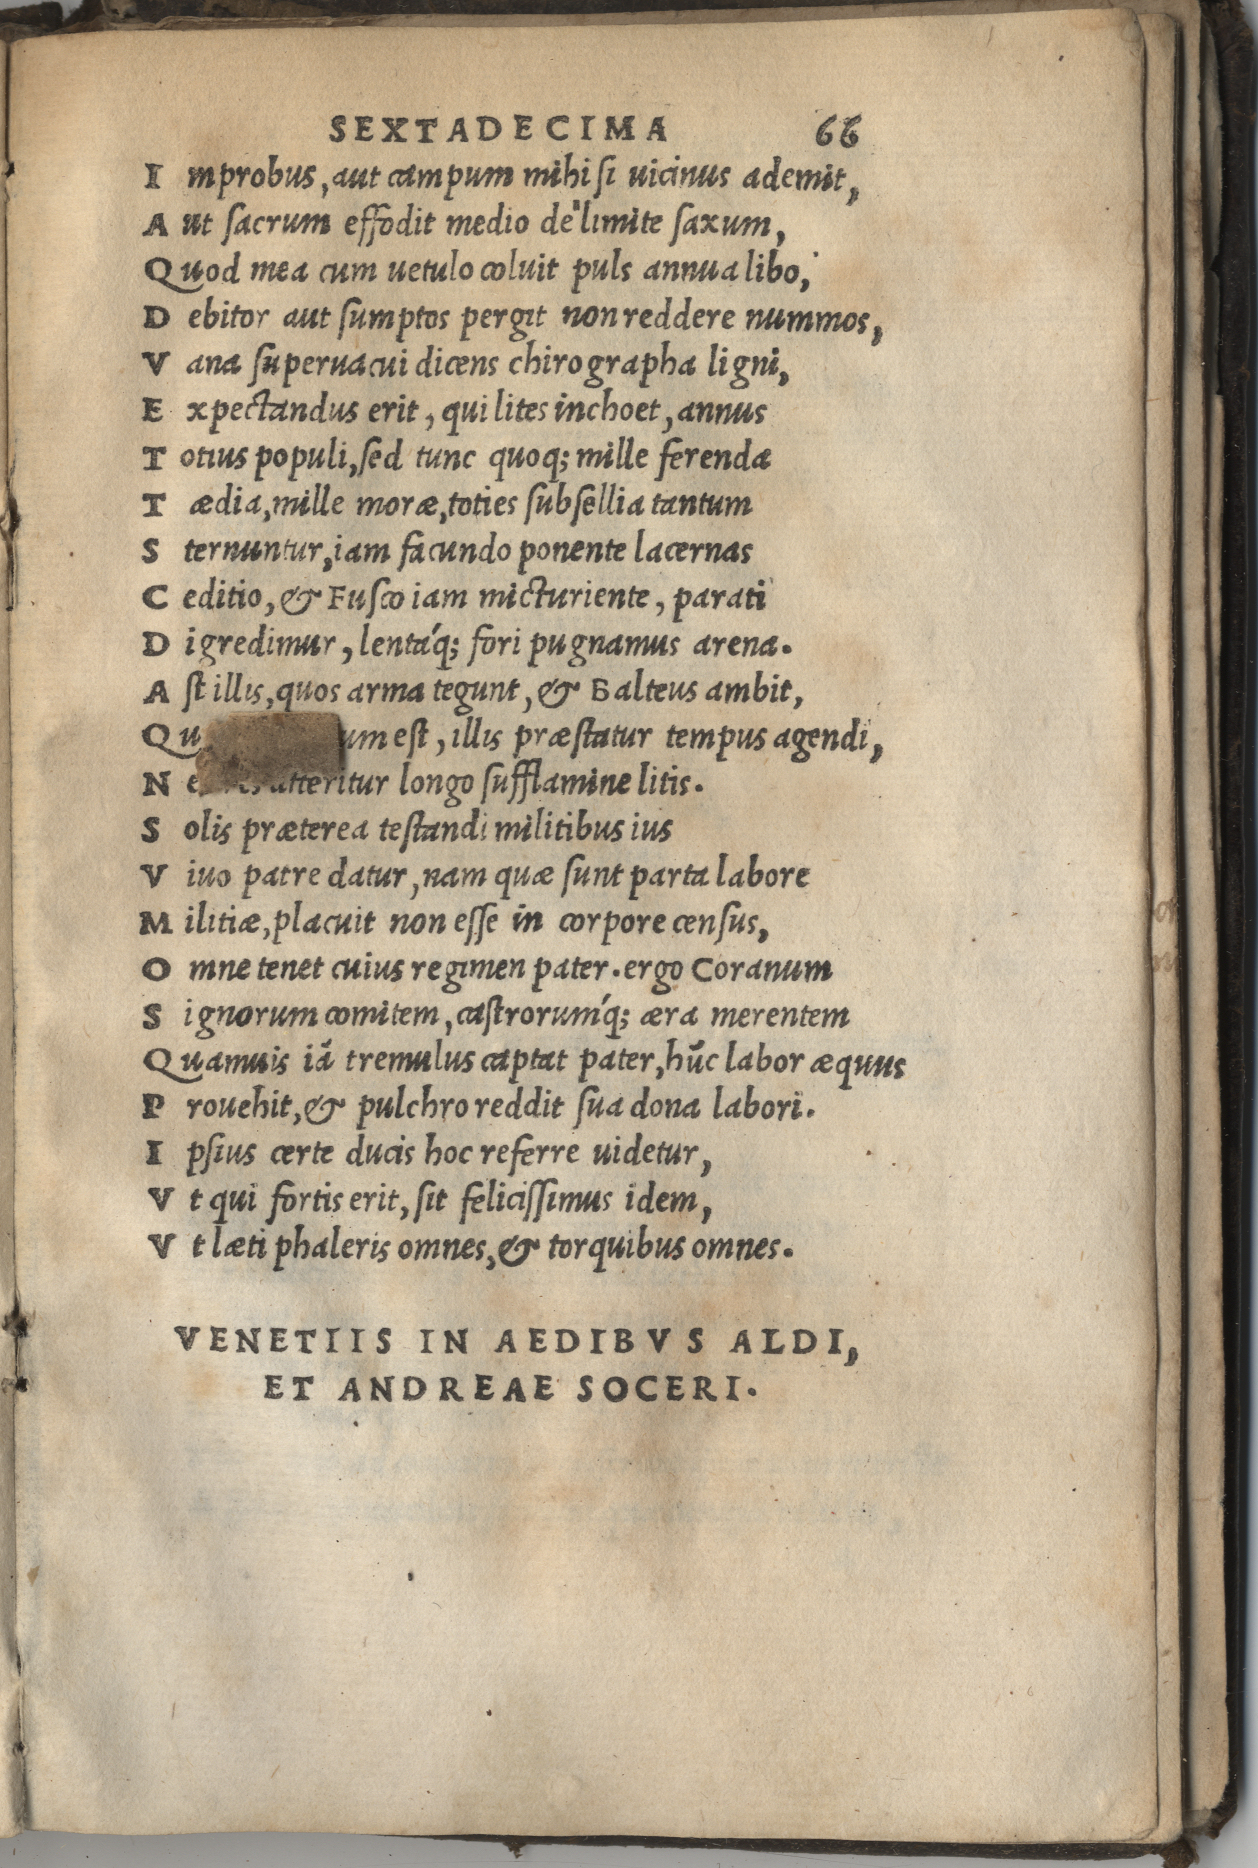 SEXTADECIMA 66
Improbus, aut campum mihi si uicinus ademit,
Aut sacrum effodit medio de limite saxum,
Quod mea cum uetulo coluit puls annua libo,
Debitor aut sumptos pergit non reddere nummos,
Vana superuacui dicens chirographa ligni,
Expectandus erit, qui lites inchoet, annus
Totius populi, sed tunc quoq; mille ferenda
Tædia, mille moræ, toties subsellia tantum
Sternuntur, iam facundo ponente lacernas
Ceditio, & Fusco iam micturiente, parati
Digredimur, lentáq; fori pugnamus arena.
Ast illis, quos arma tegunt, & Balteus ambit,
est, illis præstatur tempus agendi,
atteritur longo sufflamine litis.
Solis præterea testandi militibus ius
Viuo patre datur, nam quæ sunt parta labore
Militiæ, placuit non esse in corpore census,
Omne tenet cuius regimen pater. ergo Coranum
Signorum comitem, castrorumq́; æra merentem
Quamuis iã tremulus captat pater, hũc labor æquus
Prouehit, & pulchro reddit sua dona labori.
Ipsius certe ducis hoc referre uidetur,
Vt qui fortis erit, sit felicissimus idem,
Vt læti phaleris omnes, & torquibus omnes.
VENETIIS IN AEDIBVS ALDI,
ET ANDREAE SOCERI.